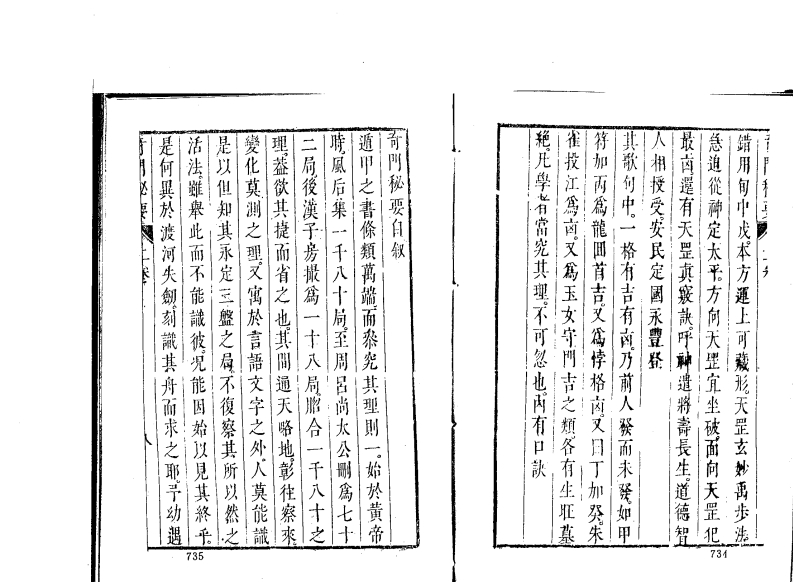 錯用旬中戍。本方運上可藏形天罡玄妙禹步法
急迫從神定太平。方向天罡宜坐破。面向天罡犯
最凶還有天罡真竅訣。呼神遣將壽長生。道德智
人相授受。安民定國永豐登
其歌句中。一格有吉有凶。乃前人發而未發。如甲
符加丙爲龍囬首吉。又爲悖格凶。又曰丁加癸。朱
雀投江爲凶。又爲玉女守門吉之類。各有生旺墓
絶。凡學者當究其理。不可忽也。內有口訣
734
奇門秘要自叙
遁甲之書條類萬端而叅究其理則一。始於黄帝
時。風后集一千八十局。至周呂尚太公刪爲七十
二局。後漢子房撮爲一十八局。脗合一千八十之
理。葢欲其捷而省之也。其間通天略地。彰往察來。
變化莫測之理。又寓於言語文字之外。人莫能識
是以但知其永定三盤之局。不復察其所以然之
活法。雖舉此而不能識彼。况能因始以見其終乎。
是何異於渡河失劍。刻識其舟而求之耶。予幼遇
奇門秘要 二卷 八
735